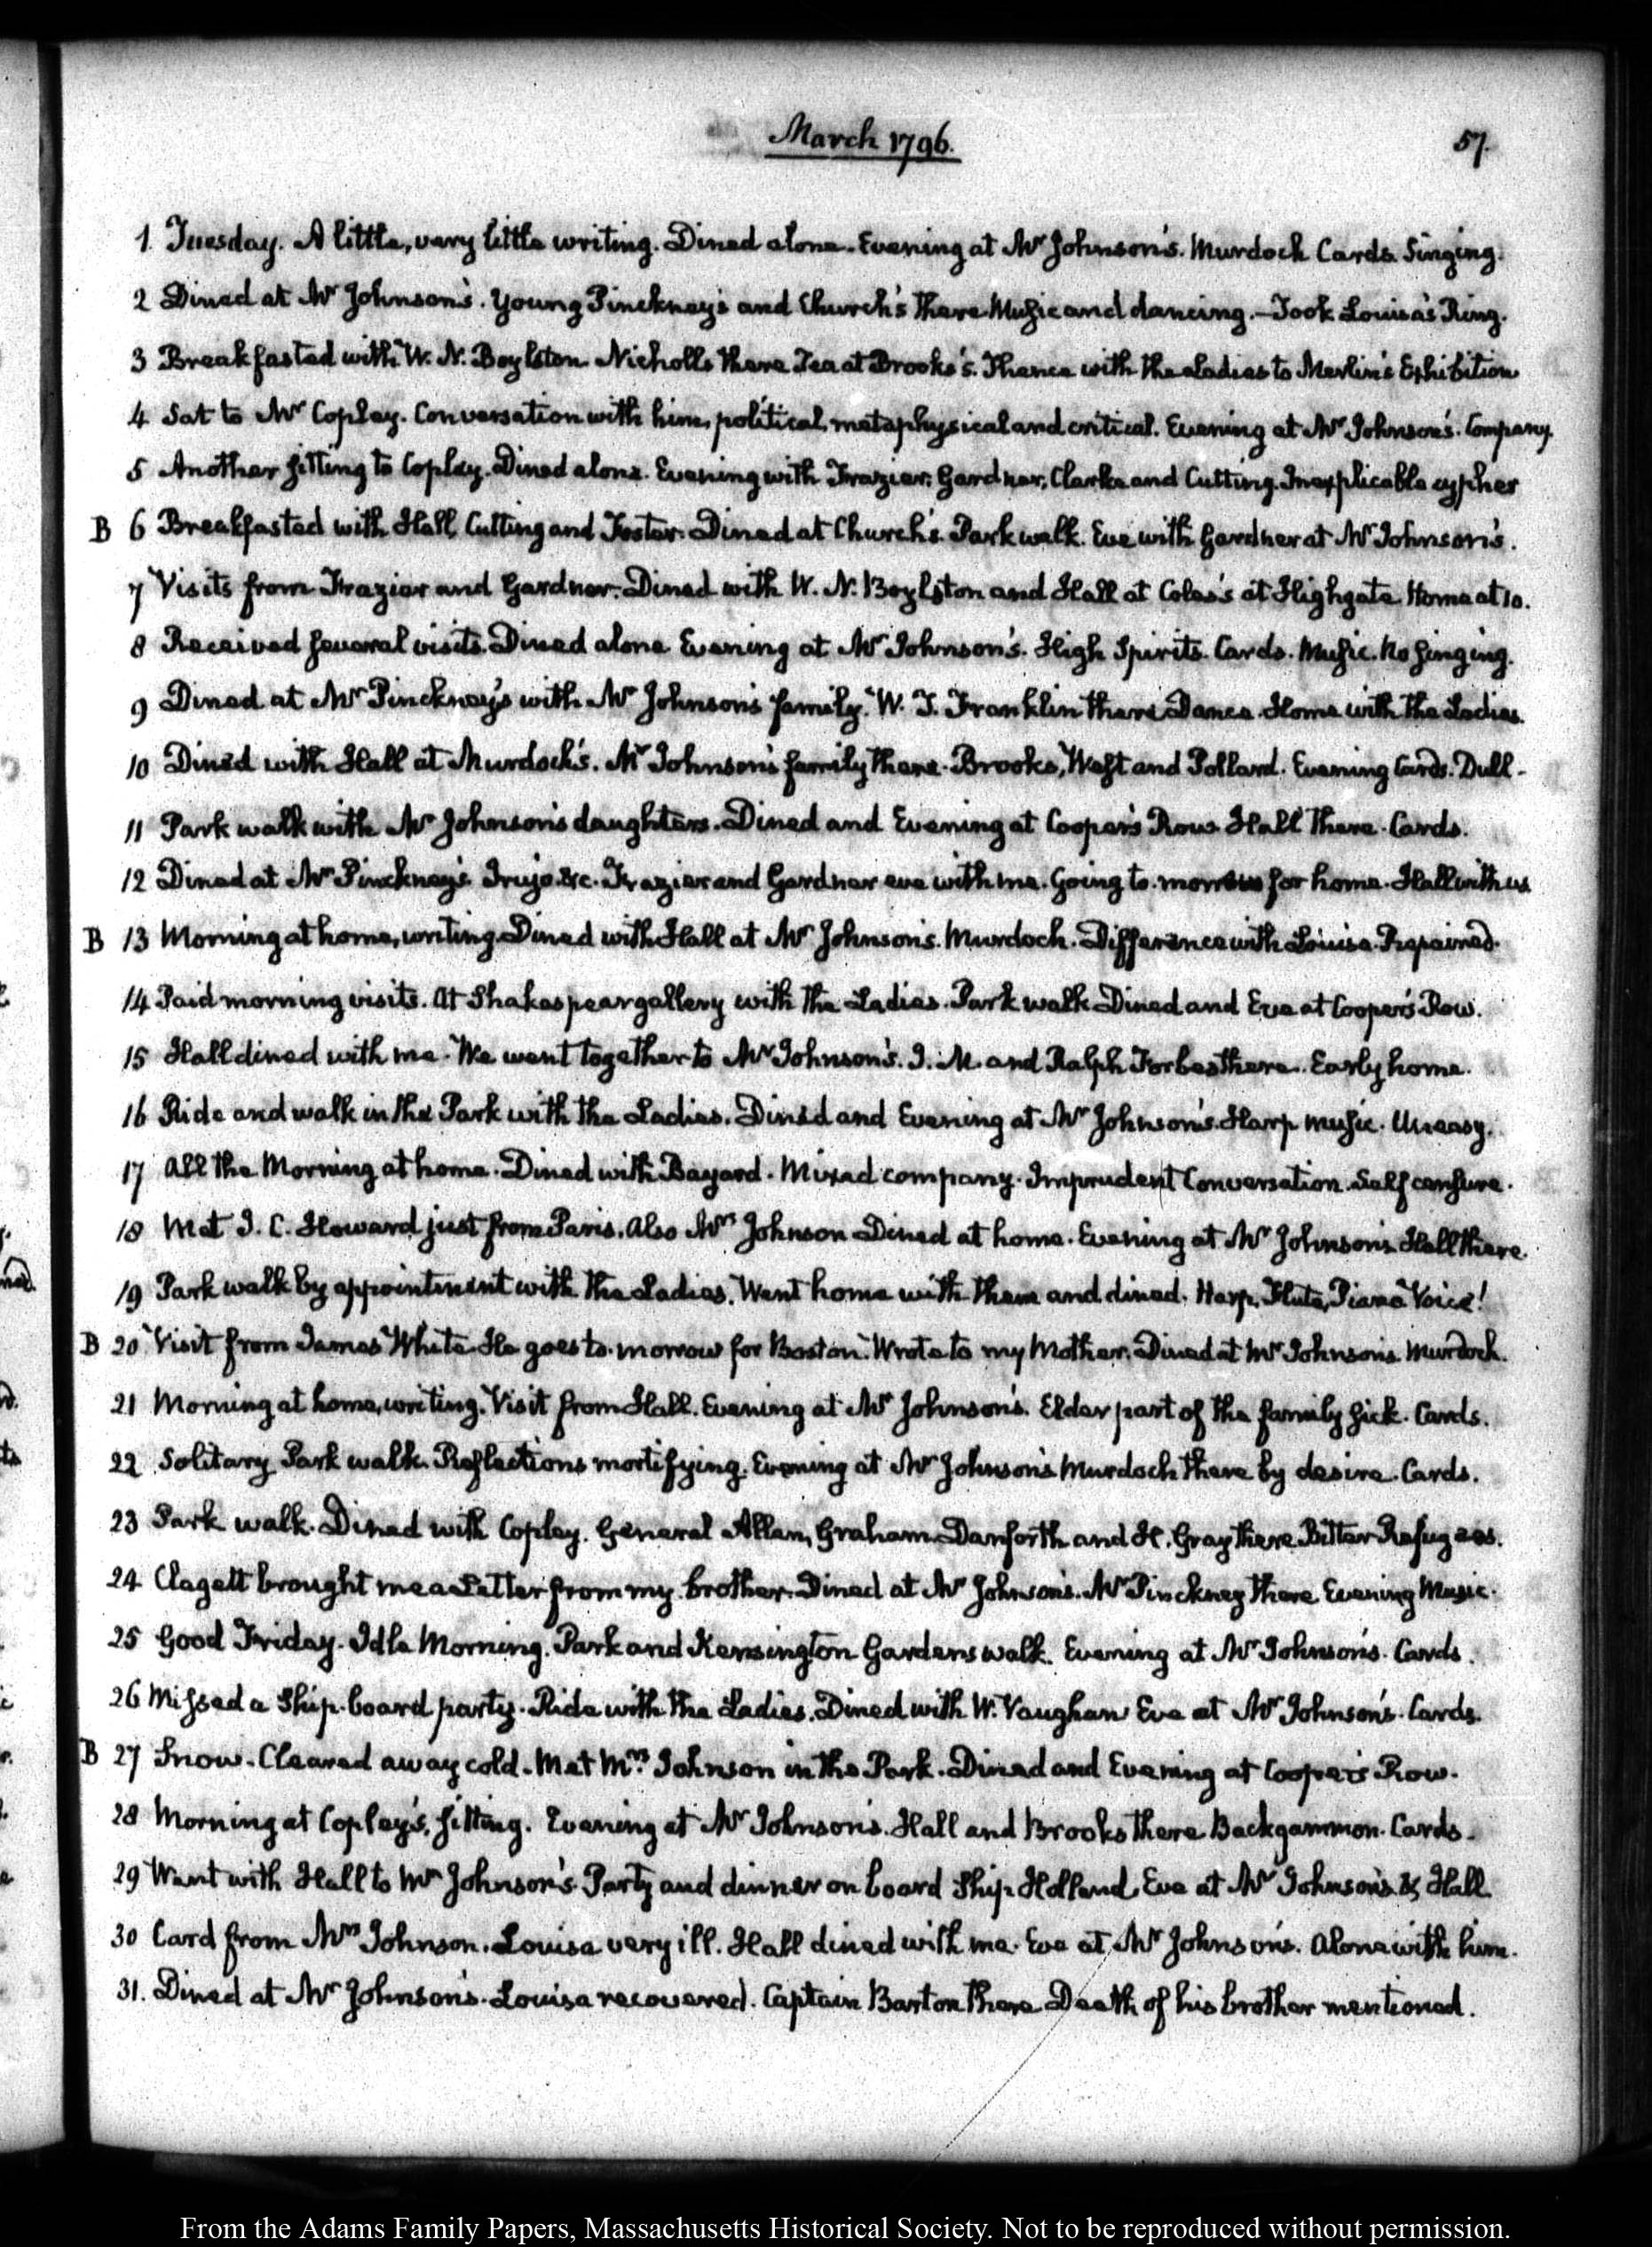 March 1796.
57.
1. Tuesday. A little, very little writing. Dined alone. Evening at Mr Johnson's. Murdock Cards. Singing.
2 Dined at Mr Johnson's. Young Pinckney's and Church's there. Music and dancing. — Took Louisa's Ring.
3 Breakfasted with W. N. Boylston. Nicholls there Tea at Brooks's. Thence with the Ladies to Merlin's Exhibition
4 Sat to Mr Copley. Conversation with him, political, metaphysical and critical. Evening at Mr Johnson's. Company.
5 Another sitting to Copley. Dined alone. Evening with Frazier, Gardner, Clarke and Cutting. Inexplicable cypher
B 6 Breakfasted with Hall, Cutting and Foster. Dined at Church's. Park walk. Eve with Gardner at Mr Johnson's.
7 Visits from Frazier and Gardner. Dined with W. N. Boylston and Hall at Coles's at Highgate. Home at 10.
8 Received several visits. Dined alone. Evening at Mr Johnson's. High Spirits. Cards. Music. No singing.
9 Dined at Mr Pinckney's with Mr Johnson's family. W. T. Franklin there Dance. Home with the Ladies.
10 Dined with Hall at Murdock's. Mr Johnson's family there. Brooks, West and Pollard. Evening Cards. Dull -
11 Park walk with Mr Johnson's daughters. Dined and Evening at Cooper's Row. Hall there. Cards.
12 Dined at Mr Pinckney's. Irujo &c. Frazier and Gardner eve with me. Going to-morrow for home. Hall with us
B 13 Morning at home, writing. Dined with Hall at Mr Johnson's. Murdock. Difference with Louisa. Repaired.
14 Paid morning visits. At Shakespear gallery with the Ladies. Park walk Dined and Eve at Cooper's Row.
15 Hall dined with me. We went together to Mr Johnson's. J. M. and Ralph Forbes there. Early home.
16 Ride and walk in the Park with the Ladies. Dined and Evening at Mr Johnson's. Harp music. Uneasy.
17 All the Morning at home. Dined with Bayard. Mixed company. Imprudent Conversation. Self censure.
18 Met J. C. Howard just from Paris. Also Mrs Johnson Dined at home. Evening at Mr Johnson's Hall there.
19 Park walk by appointment with the Ladies. Went home with them and dined. Harp, Flute, Piano Voice!
B 20 Visit from James White. He goes to-morrow for Boston. Wrote to my Mother. Dined at Mr Johnson's. Murdock.
21 Morning at home, writing. Visit from Hall. Evening at Mr Johnson's. Elder part of the family sick. Cards.
22 Solitary Park walk. Reflections mortifying. Evening at Mr Johnson's Murdock there by desire. Cards.
23 Park walk. Dined with Copley. General Allan, Graham Danforth and H. Gray there Bitter Refugees.
24 Clagett brought me a Letter from my brother. Dined at Mr Johnson's. Mr Pinckney there Evening Music.
25 Good Friday. Idle Morning. Park and Kensington Gardens walk. Evening at Mr Johnson's. Cards.
26 Missed a Ship-board party. Ride with the Ladies. Dined with W. Vaughan Eve at Mr Johnson's. Cards.
B 27 Snow. Cleared away cold. Met Mrs Johnson in the Park. Dined and Evening at Cooper's Row.
28 Morning at Copley's, sitting. Evening at Mr Johnson's. Hall and Brooks there Backgammon. Cards.
29 Went with Hall to Mr Johnson's. Party and dinner on board Ship Holland Eve at Mr Johnson's Hall
30 Card from Mrs Johnson. Louisa very ill. Hall dined with me. Eve at Mr Johnson's. Alone with him.
31. Dined at Mr Johnson's. Louisa recovered. Captain Barton there Death of his brother mentioned.
From the Adams Family Papers, Massachusetts Historical Society. Not to be reproduced without permission.